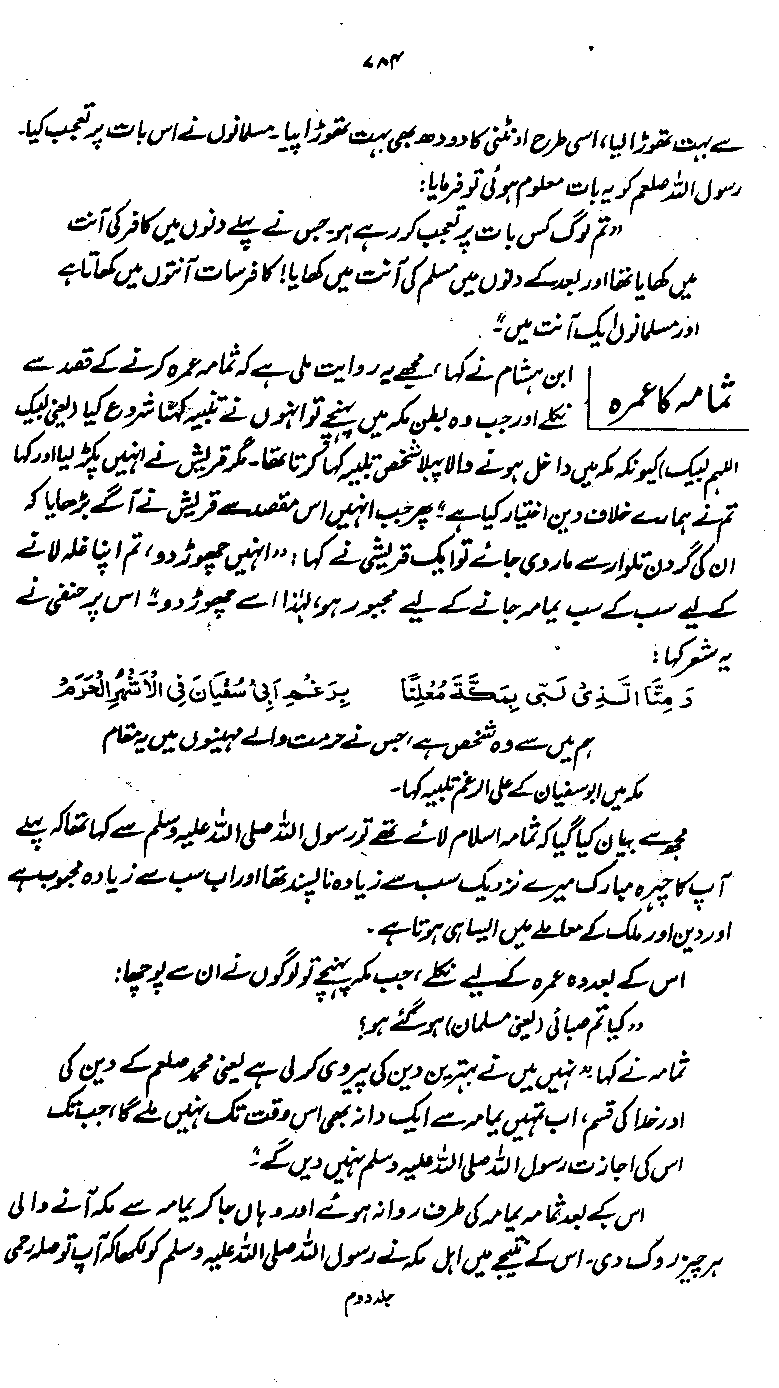 ۷۸۴
سے بہت تھوڑا لیا، اسی طرح اونٹنی کا دودھ بھی بہت تھوڑا پیا۔ مسلمانوں نے اس بات پر تعجب کیا۔
رسول اللہ صلعم کو یہ بات معلوم ہوئی تو فرمایا:
”تم لوگ کس بات پر تعجب کر رہے ہو۔ جس نے پہلے دنوں میں کافر کی آنت
میں کھایا تھا اور بعد کے دنوں میں مسلم کی آنت میں کھایا! کافر سات آنتوں میں کھاتا ہے
اور مسلمان ایک آنت میں“۔
ثمامہ کا عمرہ
ابن ہشام نے کہا، مجھے یہ روایت ملی ہے کہ ثمامہ عمرہ کرنے کے قصد سے
نکلے اور جب وہ بطن مکہ میں پہنچے تو انہوں نے تلبیہ کہنا شروع کیا (یعنی لبیک
اللہم لبیک) کیونکہ مکہ میں داخل ہونے والا پہلا شخص تلبیہ کہا کرتا تھا۔ مگر قریش نے انہیں پکڑ لیا اور کہا
تم نے ہمارے خلاف دین اختیار کیا ہے“ پھر جب انہیں اس مقصد سے قریش نے آگے بڑھایا کہ
ان کی گردن تلوار سے مار دی جائے تو ایک قریشی نے کہا: ”انہیں چھوڑ دو، تم اپنا غلہ لانے
کے لیے سب کے سب یمامہ جانے کے لیے مجبور ہو، لہٰذا اسے چھوڑ دو“ اس پر حنفی نے
یہ شعر کہا:
وَمِنَّا الَّذِیْ لَبّٰی بِمَکَّۃَ مُعْلِنًا بِرَغْمِ اَبِیْ سُفْیَانَ فِی الْاَشْھُرِ الْحَرَمِ
ہم میں سے وہ شخص ہے، جس نے حرمت والے مہینوں میں بہ مقام
مکہ میں ابوسفیان کے علی الرغم تلبیہ کہا۔
مجھ سے بیان کیا گیا کہ ثمامہ اسلام لائے تھے تو رسول اللہ صلی اللہ علیہ وسلم سے کہا تھا کہ پہلے
آپ کا چہرہ مبارک میرے نزدیک سب سے زیادہ ناپسند تھا اور اب سب سے زیادہ محبوب ہے
اور دین اور ملک کے معاملے میں ایسا ہی ہوتا ہے۔
اس کے بعد وہ عمرہ کے لیے نکلے، جب مکہ پہنچے تو لوگوں نے ان سے پوچھا:
”کیا تم صبائی (یعنی مسلمان) ہو گئے ہو؟
ثمامہ نے کہا ”نہیں میں نے بہترین دین کی پیروی کر لی ہے یعنی محمد صلعم کے دین کی
اور خدا کی قسم، اب تمہیں یمامہ سے ایک دانہ بھی اس وقت تک نہیں ملے گا، جب تک
اس کی اجازت رسول اللہ صلی اللہ علیہ وسلم نہیں دیں گے“۔
اس کے بعد ثمامہ یمامہ کی طرف روانہ ہوئے اور وہاں جا کر یمامہ سے مکہ آنے والی
ہر چیز روک دی۔ اس کے نتیجے میں اہل مکہ نے رسول اللہ صلی اللہ علیہ وسلم کو لکھا کہ آپ تو صلہ رحمی
جلد دوم